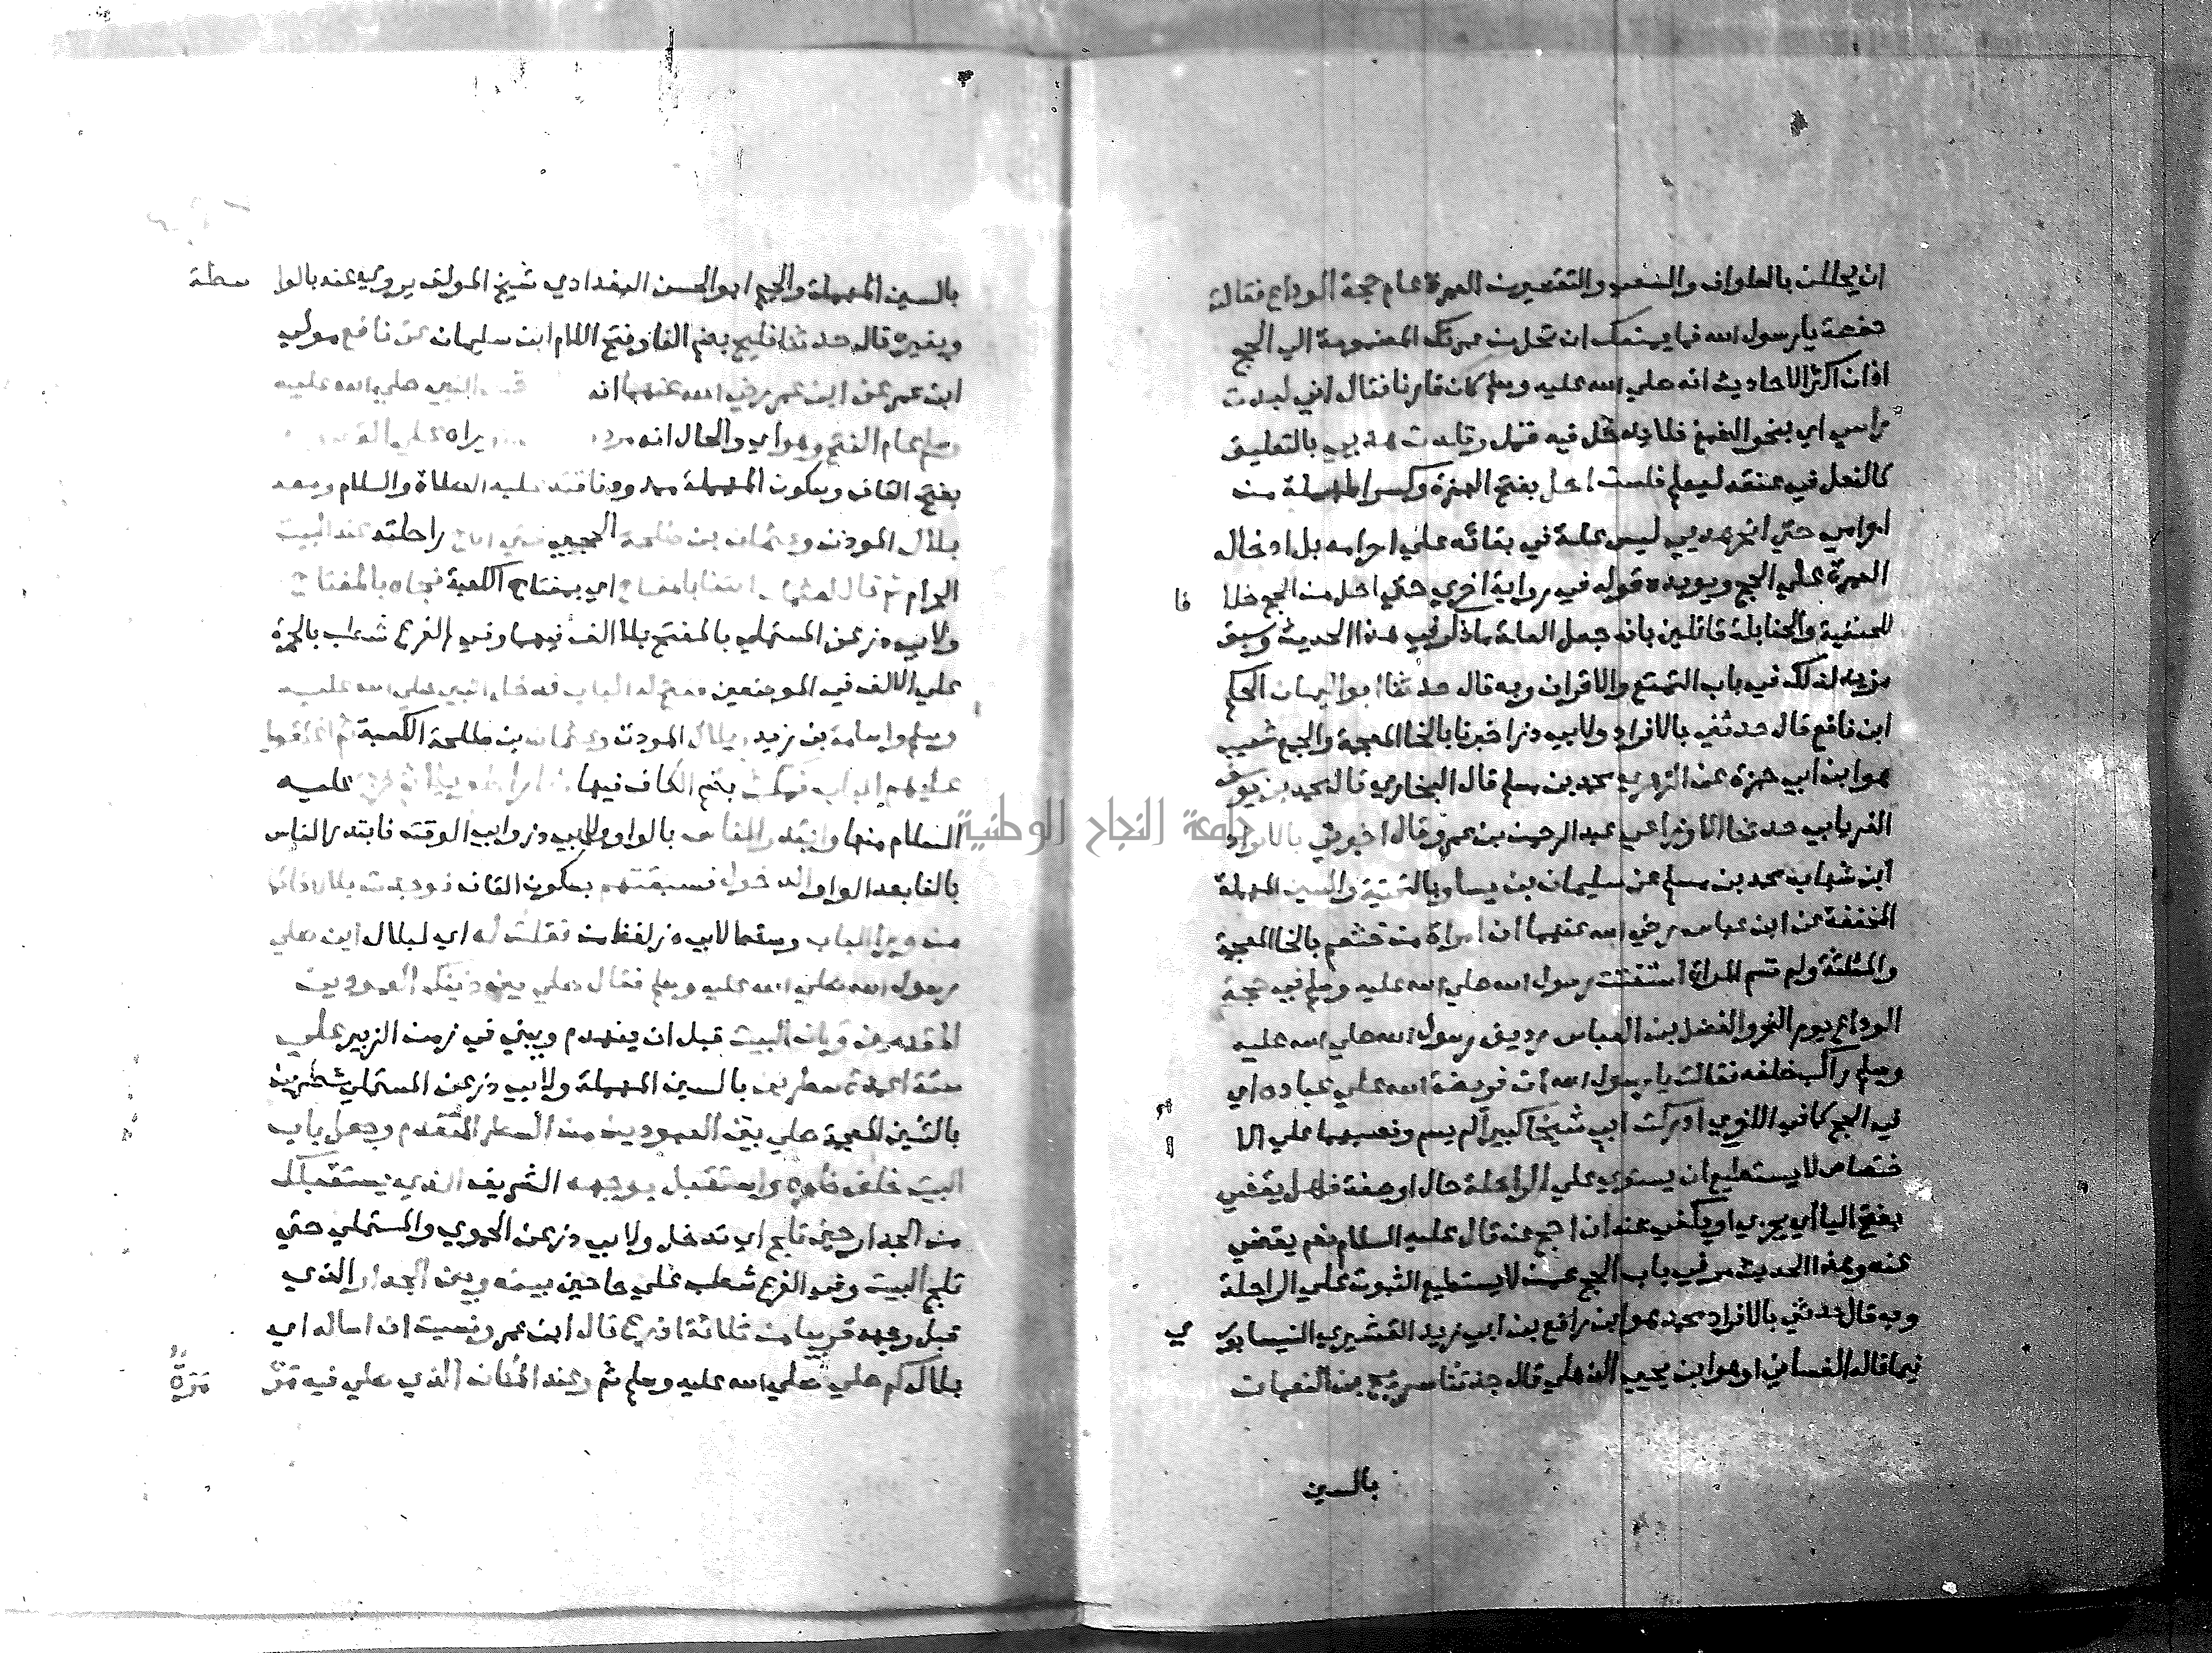 ان يحللن بالطواف والسعي والتقصير من العمرة عام حجة الوداع فقالت
حفصة يا رسول الله فما يمنعك ان تحل من عمرتك المضمومة الي الحج
اذ ان اكثر الاحاديث انه صلي الله عليه وسلم كان قارنا فقال اني لبدت
راسي اي بنحو الصمغ فلا يدخل فيه قمل وقلدت هديي بالتعليق
كالنعل في عنقه ليعلم فلست احل بفتح الهمزة وكسر المهملة من
احرامي حتي انحر هديي ليس علة في بقائه علي احرامه بل ادخاله
العمرة علي الحج ويويده قوله في رواية اخري حتي احل من الحج خلا فا
للحنفية والحنابلة قائلين بانه جعل العلة ماذكر في هذا الحديث وسبق
مزيد لذلك في باب التمتع والاقران وبه قال حدثنا ابو اليمان الحكم
ابن نافع قال حدثني بالافراد ولابي ذر اخبرنا بالخا المعجمة والجمع شعيب
هو ابن ابي حمزة عن الزهري محمد بن مسلم قال البخاري قال محمد بن يوسف
الفريابي حدثنا الاوزاعي عبد الرحمن بن عمرو قال اخبرني بالافراد
ابن شهاب محمد بن مسلم عن سليمان بن يسار بالتحتية والسين المهملة
المخففة عن ابن عباس رضي الله عنهما ان امراة من خثعم بالخا المعجمة
والمثلثة ولم تسم المراة استفتت رسول الله صلي الله عليه وسلم في حجة
الوداع يوم النحر والفضل بن العباس رديف رسول الله صلي الله عليه
وسلم راكب خلفه فقالت يا رسول الله ان فريضة الله علي عباده اي
في الحج كما في اللغوي ادركت ابي شيخا كبيرا لم يسم ونصبهما علي الا
ختصاص لا يستطيع ان يستوي علي الراحلة حال او صفة فهل يقضي
بفتح اليا اي يجزي او يكفي عنه ان احج عنه قال عليه السلام نعم يقضي
عنه وهذا الحديث مر في باب الحج عمن لا يستطيع الثبوت علي الراحلة
وبه قال حدثني بالافراد محمد هو ابن رافع بن ابي زيد القشيري النيسابور ي
فيما قاله الغساني او هو ابن يحيي الذهلي قال حدثنا سريج بن النعمان
بالسين
بالسين المهملة والجيم ابو الحسن البغدادي شيخ المولف يروي عنه بالوا سطة
وبغيره قال حدثنا فليح بضم الفا وفتح اللام ابن سليمان عن نافع مولي
ابن عمر عن ابن عمر رضي الله عنهما انه قال النبي صلي الله عليه
وسلم عام الفتح وهو اي والحال انه مردف براه علي القصوا
بفتح القاف وسكون المهملة ممدود ناقته عليه الصلاة والسلام ومعه
بلال الموذن وعثمان بن طلحة الحجبي حتي اناخ راحلته عند البيت
الحرام ثم قال لعثمان ايتنا بالمفتاح اي بمفتاح الكعبة فجاه بالمفتاح
ولابي ذر عن المستملي بالمفتح بلا الف فيهما وفي الفرع شطب بالحمرة
علي الالف في الموضعين ففتح له الباب فدخل النبي صلي الله عليه
وسلم واسامة بن زيد وبلال الموذن وعثمان بن طلحة الكعبة ثم اغلقوا
عليهم الباب فمكث بضم الكاف فيها نهارا طويلا ثم خرج عليه
السلام منها وابتدر الناس بالواو ولابي ذر وابي الوقت فابتدر الناس
بالفا بعد الواو الدخول فسبقتهم بسكون القاف فوجدت بلالا قائما
من ورا الباب وسقط لابي ذر لفظ من فقلت له اي لبلال اين صلي
رسول الله صلي الله عليه وسلم فقال صلي بين ذينك العمودين
المقدمين وكان البيت قبل ان يهدم ويبني في زمن الزبير علي
ستة اعمدة سطرين بالسين المهملة ولابي ذر عن المستملي شطرين
بالشين المعجمة صلي بين العمودين من السطر المتقدم وجعل باب
البيت خلف ظهره واستقبل بوجهه الشريف الذي يستقبلك
من الجدار حين تلج اي تدخل ولابي ذر عن الحموي والمستملي حتي
تلج البيت وفي الفرع شطب علي حا حين بينه وبين الجدار الذي
قبل وجهه قريبا من ثلاثة اذرع قال ابن عمر ونسيت ان اساله اي
بلال كم صلي صلي الله عليه وسلم ثم وعند المكان الذي صلي فيه مرمرة
جامعة النجاح الوطنية